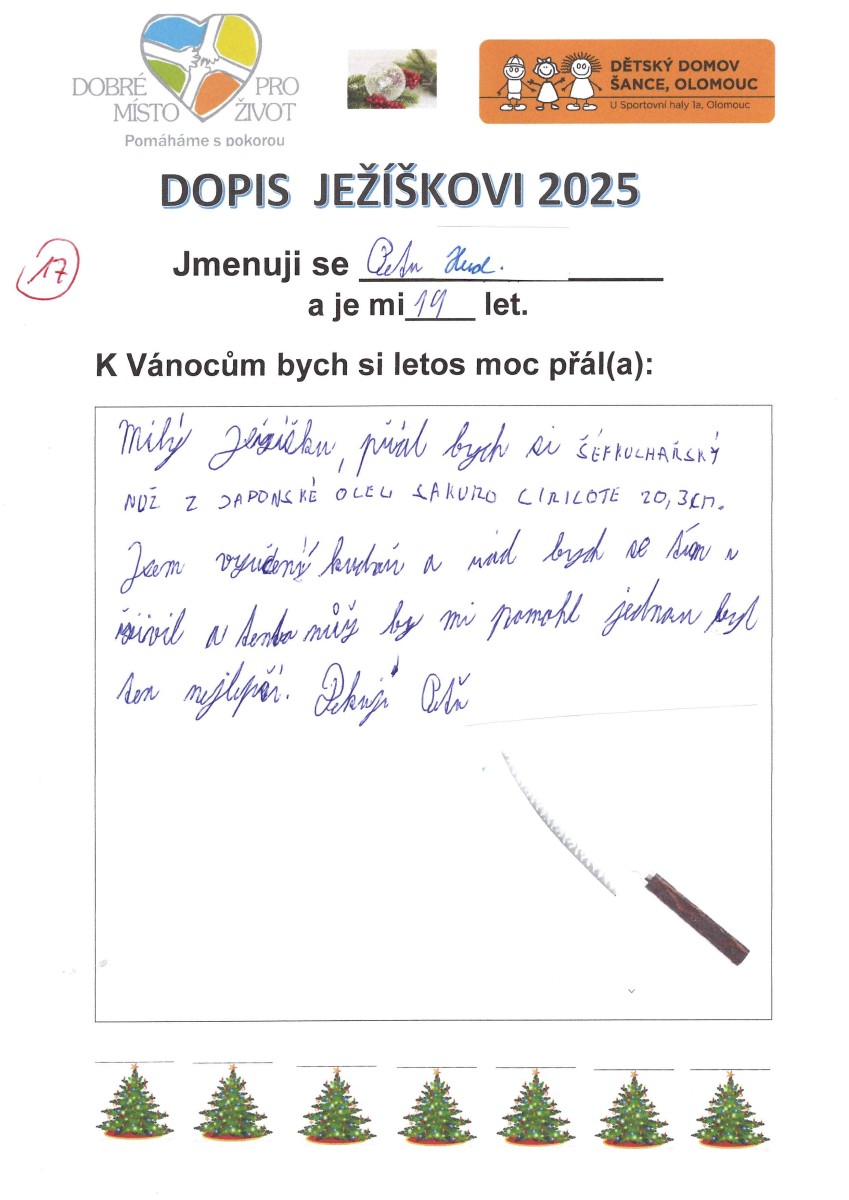 DOBRÉ PRO
MÍSTO ŽIVOT
Pomáháme s pokorou
DĚTSKÝ DOMOV
ŠANCE, OLOMOUC
U Sportovní haly 1a, Olomouc
DOPIS JEŽÍŠKOVI 2025
17
Jmenuji se Petr Hud.
a je mi 19 let.
K Vánocům bych si letos moc přál(a):
Milý Ježíšku, přál bych si ŠÉFKUCHAŘSKÝ
NUŽ Z JAPONSKÉ OLELI SAKURO 20,3CM.
Jsem vyučený kuchař a rád bych se tím
živil a tento nůž by mi pomohl jednou být
ten nejlepší. Dekuji Petr